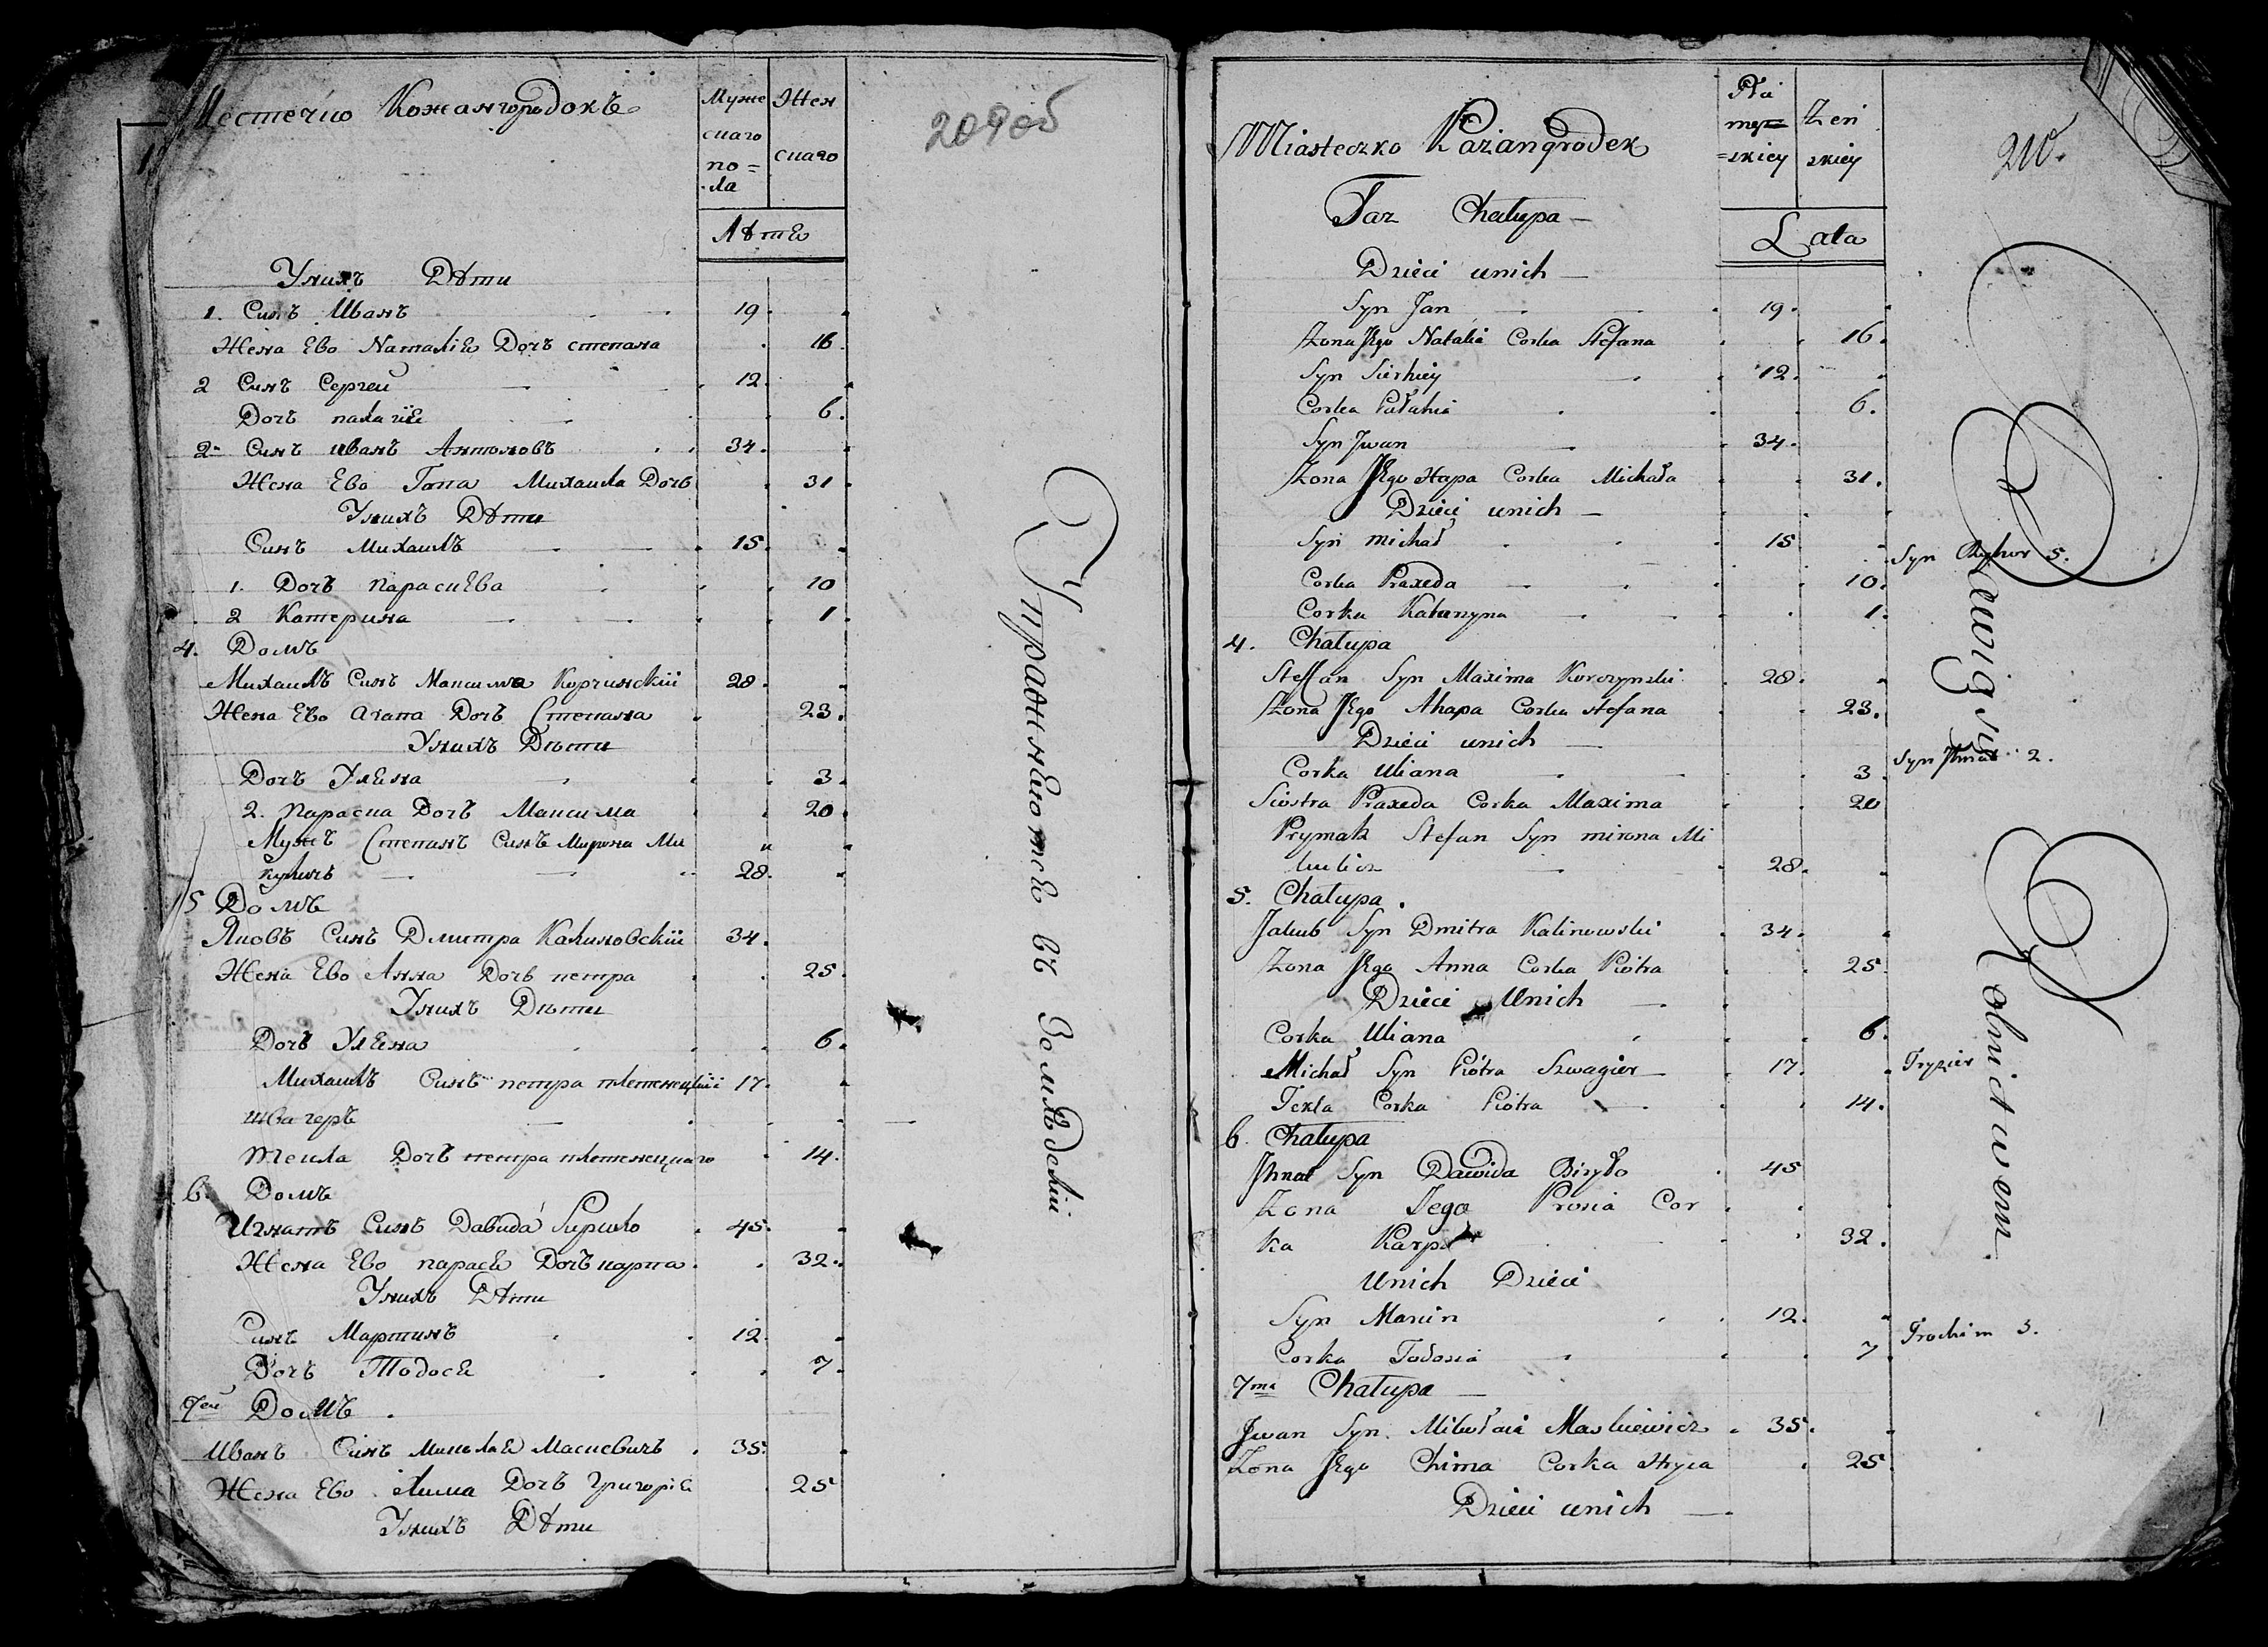 Местечко Кожангородокъ
Муже Жен
скаго скаго
по=
ла
Лѣта
209об
Унихъ Дѣти
1. Синъ Иванъ 19
Жена Ево Наталія Дочъ степана 16
2 Синъ Сергей 12
Дочъ палагія 6
2 Синъ иванъ Антоновъ 34
Жена Ево Гапа Михаила Дочъ 31
Унихъ Дѣти
Синъ Михаилъ 15
1. Дочъ Параскева 10
2 Катерина 1
4. Домъ
Михаилъ Синъ Максима Корчинскій 28
Жена Ево Агапа Дочъ Степана 23
Унихъ Дѣти
Дочъ Уляна 3
2. Параска Дочъ Максима 20
Мужъ Степанъ Синъ Мирона Ми
куличъ 28
5 Домъ
Яковъ Синъ Дмитра Калиновскій 34
Жена Ево Анна Дочъ петра 25
Унихъ Дѣти
Дочъ Уляна 6
Михаилъ Синъ петра плетенецкій 17
швагеръ
Текла Дочъ петра плетенецкаго 14
6 Домъ
Игнатъ Синъ Давида 45
Жена Ево парася Дочъ карпа 32
Унихъ Дѣти
Синъ Мартинъ 12
Дочъ Тодося 7
7ей Домъ
Иванъ Синъ Миколая Маскевичъ 35
Жена Ево Хима Дочъ Григорія 25
Унихъ Дѣти
Упражняются въ Земледеліи
Miasteczko Każangrodek
Płci
męz= Zeń
=skiey skiey
Lata
210.
Taz Chałupa
Dzieci unich
Syn Jan 19
Zona Jego Natalia Corka Stefana 16
Syn Sierhiey 12
Corka Pałahia 6
Syn Jwan 34
Zona Jego Hapa Corka Michała 31
Dzieci unich
Syn michał 15
Syn Ryhor 5.
Corka Praxeda 10
Corka Katarzyna 1
4. Chałupa
Steffan Syn Maxima Korczynski 28
Zona Jego Ahapa Corka stefana 23
Dzieci unich
Syn Jhnat 2.
Corka Uliana 3
Siostra Praxeda Corka Maxima 20
Prymak Stefan Syn mirona Mi
kulicz 28
5. Chałupa
Jakub Syn Dmitra Kalinowski 34
Zona Jego Anna Corka Piotra 25
Dzieci Unich
Corka Uliana 6
Michał Syn Piotra Szwagier 17
Tekla Corka Piotra 14
6. Chałupa
Jhnat Syn Dawida Biryło 45
Zona Jego Prosia Cor
ka Karpa 32
Unich Dzieci
Syn Marcin 12
Trochim 3.
Corka Todosia 7
7ma Chałupa
Jwan Syn Mikołaia Maskiewicz 35
Zona Jego Chima Corka Hryca 25
Dzieci unich
Rolnictwem